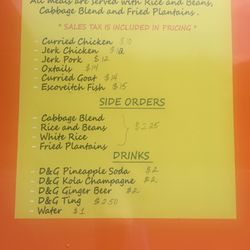 All meals are served with Rice and Beans,
Cabbage Blend and Fried Plantains .
* SALES TAX IS INCLUDED IN PRICING *
- Curried Chicken $10
- Jerk Chicken $12
- Jerk Pork $12
- Oxtails $14
- Curried Goat $14
- Escoveitch Fish $15
SIDE ORDERS
- Cabbage Blend
- Rice and Beans } $2.25
- White Rice
- Fried Plantains
DRINKS
- D&G Pineapple Soda $2
- D&G Kola Champagne $2
- D&G Ginger Beer $2
- D&G Ting $2.50
- Water $1